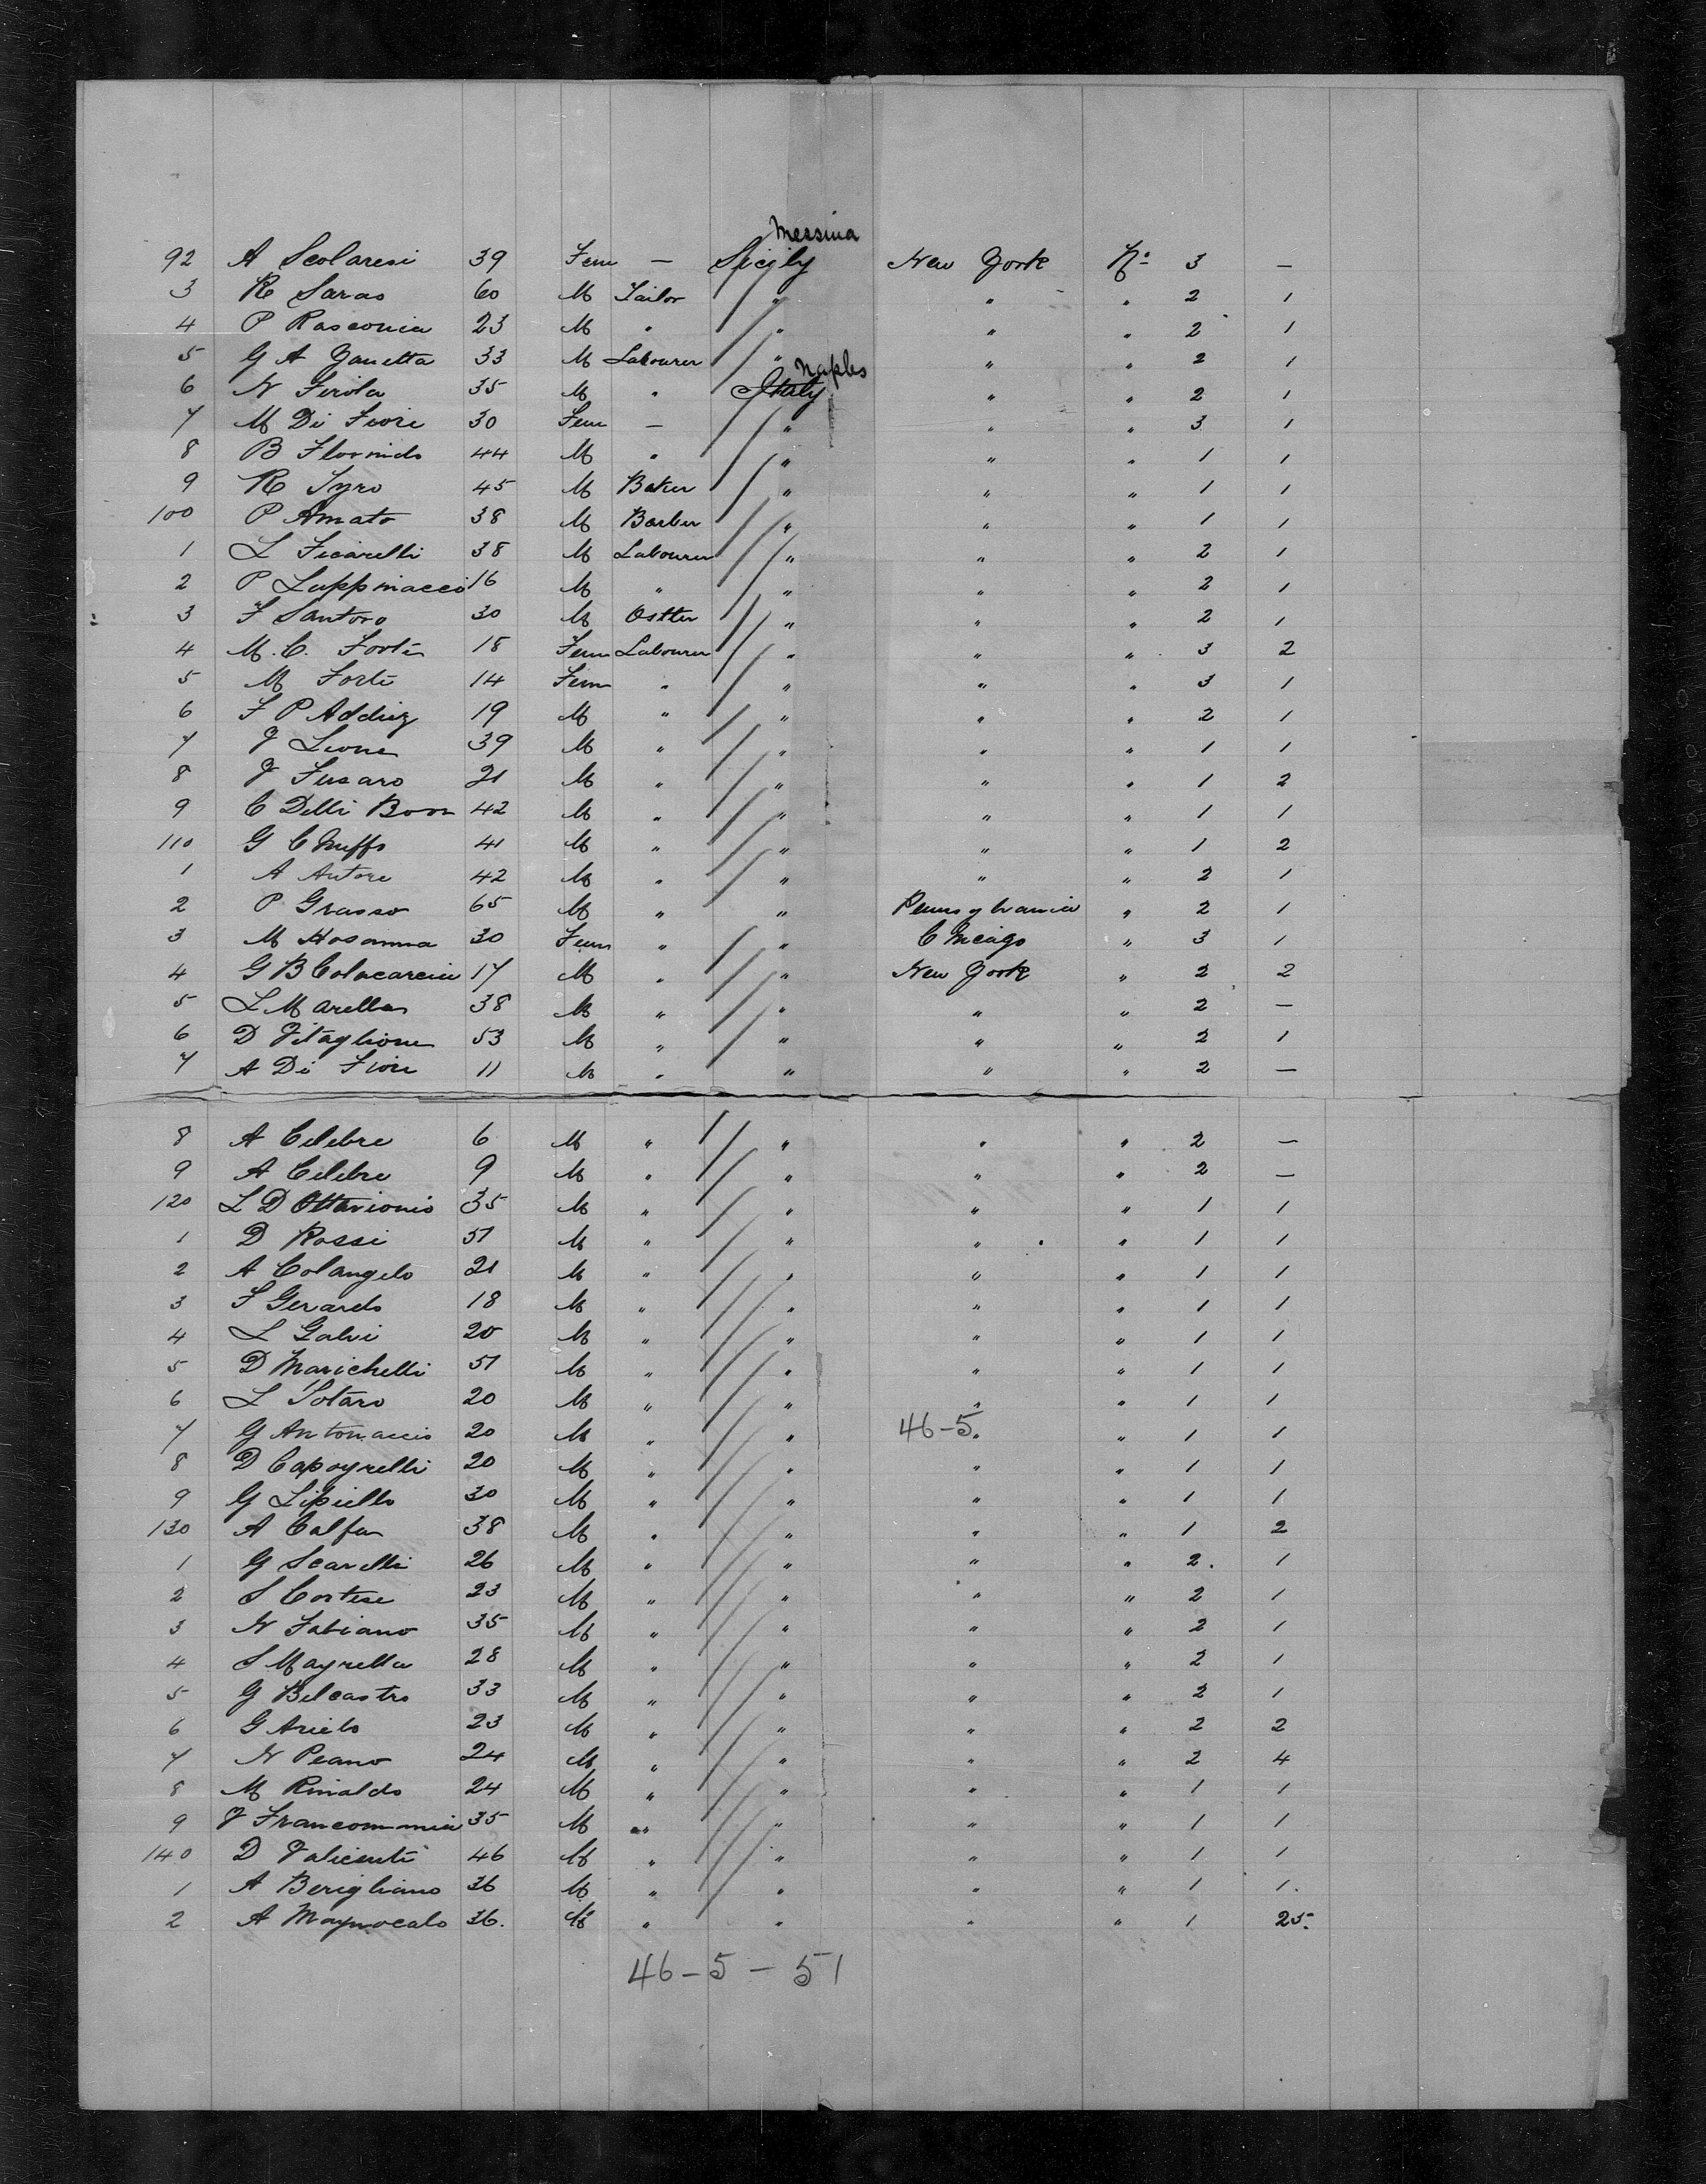 Messina
92 A Scolaresi 39 Fem — Sicily New York No 3 —
3 R Saras 60 M Tailor " " " 2 1
4 P Rasconia 23 M " " " " 2 1
5 G A Zanetta 33 M Labourer " " " 2 1
Naples
6 N Firola 35 M " Italy " " 2 1
7 M Di Fiori 30 Fem — " " " 3 1
8 B Florindo 44 M " " " " 1 1
9 R Tyro 45 M Baker " " " 1 1
100 P Amato 38 M Barber " " " 1 1
1 L Ficarelli 38 M Labourer " " " 2 1
2 P Luppinacci 16 M " " " " 2 1
3 F Santoro 30 M Ostler " " " 2 1
4 M. C. Forte 18 Fem Labourer " " " 3 2
5 M Forte 14 Fem " " " " 3 1
6 F P 19 M " " " " 2 1
7 V Leone 39 M " " " " 1 1
8 V Fusaro 21 M " " " " 1 2
9 C Delli Bovi 42 M " " " " 1 1
110 G Chuffo 41 M " " " " 1 2
1 A Autore 42 M " " " " 2 1
2 P Grasso 65 M " " Pennsylvania " 2 1
3 M Hosanna 30 Fem " " Chicago " 3 1
4 G B Colacarcia 17 M " " New York " 2 2
5 L Marella 38 M " " " " 2 —
6 D Vitaglione 53 M " " " " 2 1
7 A Di Fiore 11 M " " " " 2 —
8 A Celebre 6 M " " " " 2 —
9 A Celebre 9 M " " " " 2 —
120 L D Ottavionio 35 M " " " " 1 1
1 D Rossi 51 M " " " " 1 1
2 A Colangelo 21 M " " " " 1 1
3 F Gerardo 18 M " " " " 1 1
4 L Galvi 20 M " " " " 1 1
5 D Marichelli 51 M " " " " 1 1
6 L Sotaro 20 M " " " " 1 1
7 G Antonaccio 20 M " " 46-5 " " 1 1
8 D Capoyrelli 20 M " " " " 1 1
9 G Lipiello 30 M " " " " 1 1
130 A Calfa 38 M " " " " 1 2
1 G Scarelli 26 M " " " " 2 1
2 S Cortese 23 M " " " " 2 1
3 N Fabiano 35 M " " " " 2 1
4 S Mayrella 28 M " " " " 2 1
5 G Belcastro 33 M " " " " 2 1
6 G Arielo 23 M " " " " 2 2
7 N Peano 24 M " " " " 2 4
8 M Rinaldo 24 M " " " " 1 1
9 V Francommia 35 M " " " " 1 1
140 D Valicenti 46 M " " " " 1 1
1 A Berigliano 36 M " " " " 1 1
2 A 36 M " " " " 1 25
46-5-51